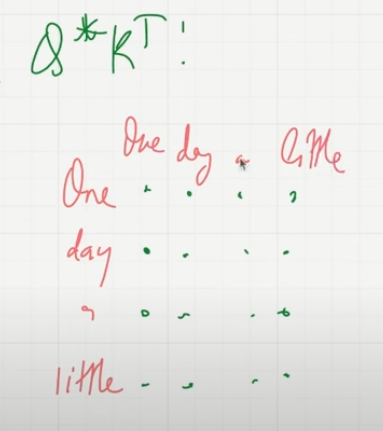 Q*K^T!
One day a little
One
day
a
little